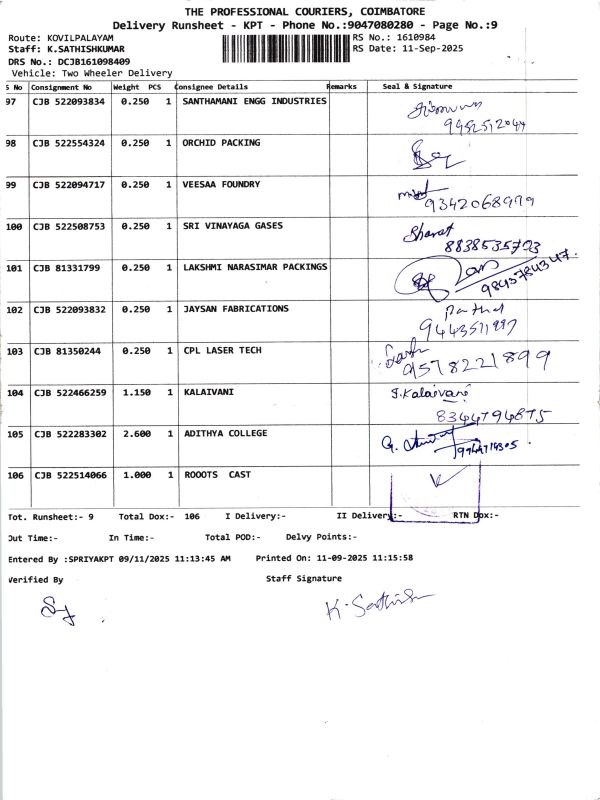 THE PROFESSIONAL COURIERS, COIMBATORE
Delivery Runsheet - KPT - Phone No.:9047080280 - Page No.:9
Route: KOVILPALAYAM RS No.: 1610984
Staff: K.SATHISHKUMAR RS Date: 11-Sep-2025
DRS No.: DCJB161098409
Vehicle: Two Wheeler Delivery
S No Consignment No Weight PCS Consignee Details Remarks Seal & Signature
97 CJB 522093834 0.250 1 SANTHAMANI ENGG INDUSTRIES
9452512044
98 CJB 522554324 0.250 1 ORCHID PACKING
99 CJB 522094717 0.250 1 VEESAA FOUNDRY
9342068979
100 CJB 522508753 0.250 1 SRI VINAYAGA GASES Sharat
8838535793
101 CJB 81331799 0.250 1 LAKSHMI NARASIMAR PACKINGS
9843784347.
102 CJB 522093832 0.250 1 JAYSAN FABRICATIONS
9443511997
103 CJB 81350244 0.250 1 CPL LASER TECH
9578221899
104 CJB 522466259 1.150 1 KALAIVANI J.Kalaivani
8344794875
105 CJB 522283302 2.600 1 ADITHYA COLLEGE
106 CJB 522514066 1.000 1 ROOOTS CAST
Tot. Runsheet:- 9 Total Dox:- 106 I Delivery:- II Delivery:- RTN Dox:-
Out Time:- In Time:- Total POD:- Delvy Points:-
Entered By :SPRIYAKPT 09/11/2025 11:13:45 AM Printed On: 11-09-2025 11:15:58
Verified By Staff Signature
K. Sathish